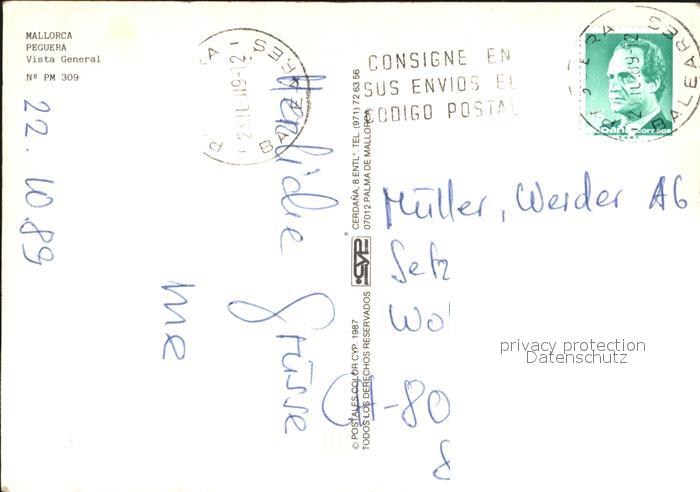 MALLORCA
PEGUERA
Vista General
Nº PM 309
22. 10. 89
Herzliche Grüsse
CONSIGNE EN
SUS ENVIOS EL
CODIGO POSTAL
BALEARES
BALEARES
correos
CERDAÑA, 8 ENTLº. TEL. (971) 72 63 56
07012 PALMA DE MALLORCA
CYP
© POSTALES COLOR CYP. 1987
TODOS LOS DERECHOS RESERVADOS
Müller, Werder AG
Setz
Wo
CH-80
8
privacy protection
Datenschutz